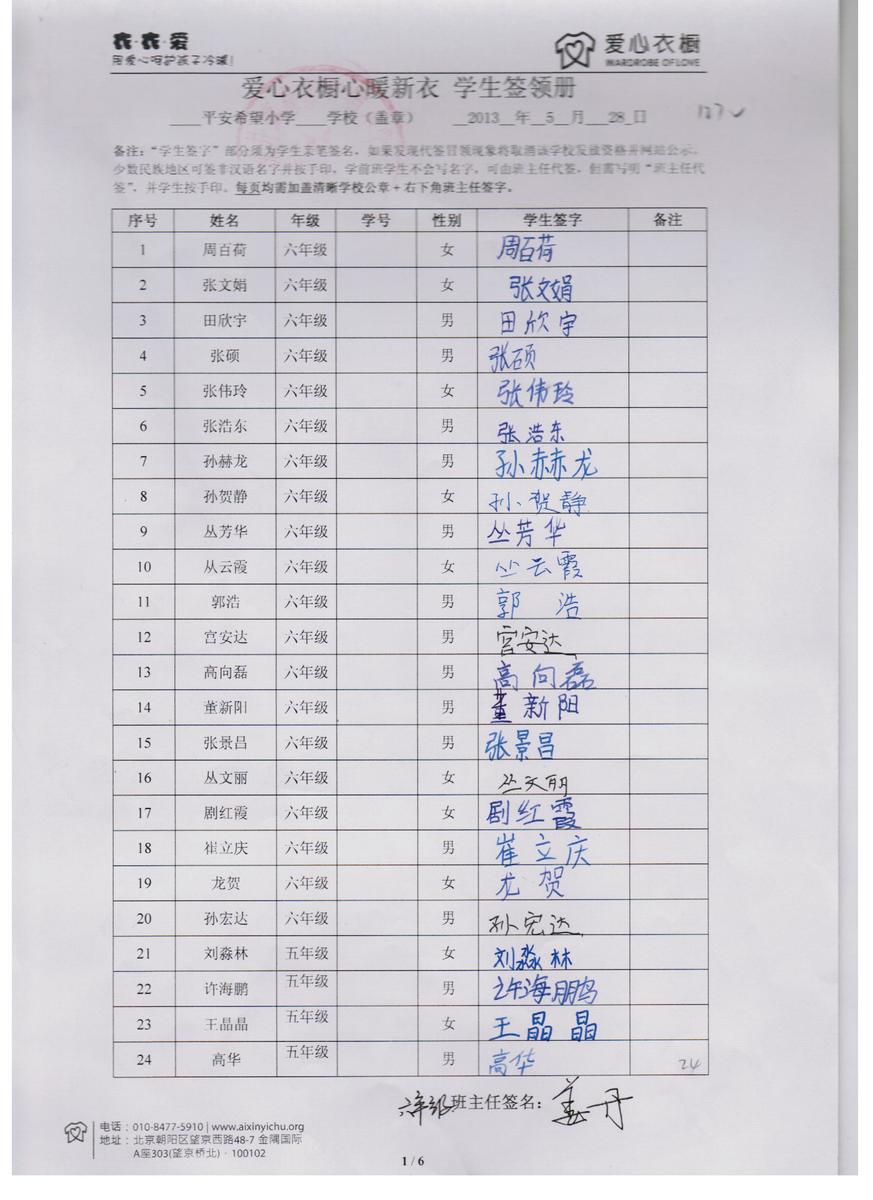 衣·衣·爱
用爱心呵护孩子冷暖!
爱心衣橱
WARDROBE OF LOVE
爱心衣橱心暖新衣 学生签领册
____平安希望小学____学校（盖章） __2013__年__5__月___28_日
备注：“学生签字”部分须为学生亲笔签名，如果发现代签冒领现象将取消该学校发放资格并网站公示。
少数民族地区可签非汉语名字并按手印，学前班学生不会写名字，可由班主任代签，但需写明“班主任代
签”，并学生按手印。每页均需加盖清晰学校公章+右下角班主任签字。
序号 姓名 年级 学号 性别 学生签字 备注
1 周百荷 六年级 女 周百荷
2 张文娟 六年级 女 张文娟
3 田欣宇 六年级 男 田欣宇
4 张硕 六年级 男 张硕
5 张伟玲 六年级 女 张伟玲
6 张浩东 六年级 男 张浩东
7 孙赫龙 六年级 男 孙赫龙
8 孙贺静 六年级 女 孙贺静
9 丛芳华 六年级 男 丛芳华
10 从云霞 六年级 女 丛云霞
11 郭浩 六年级 男 郭浩
12 宫安达 六年级 男 宫安达
13 高向磊 六年级 男 高向磊
14 董新阳 六年级 男 董新阳
15 张景昌 六年级 男 张景昌
16 丛文丽 六年级 女 丛文丽
17 剧红霞 六年级 女 剧红霞
18 崔立庆 六年级 男 崔立庆
19 龙贺 六年级 女 龙贺
20 孙宏达 六年级 男 孙宏达
21 刘淼林 五年级 女 刘淼林
22 许海鹏 五年级 男 许海鹏
23 王晶晶 五年级 女 王晶晶
24 高华 五年级 男 高华 24
六年级班主任签名：
电话：010-8477-5910 | www.aixinyichu.org
地址：北京朝阳区望京西路48-7 金隅国际
A座303(望京桥北)·100102
1 / 6